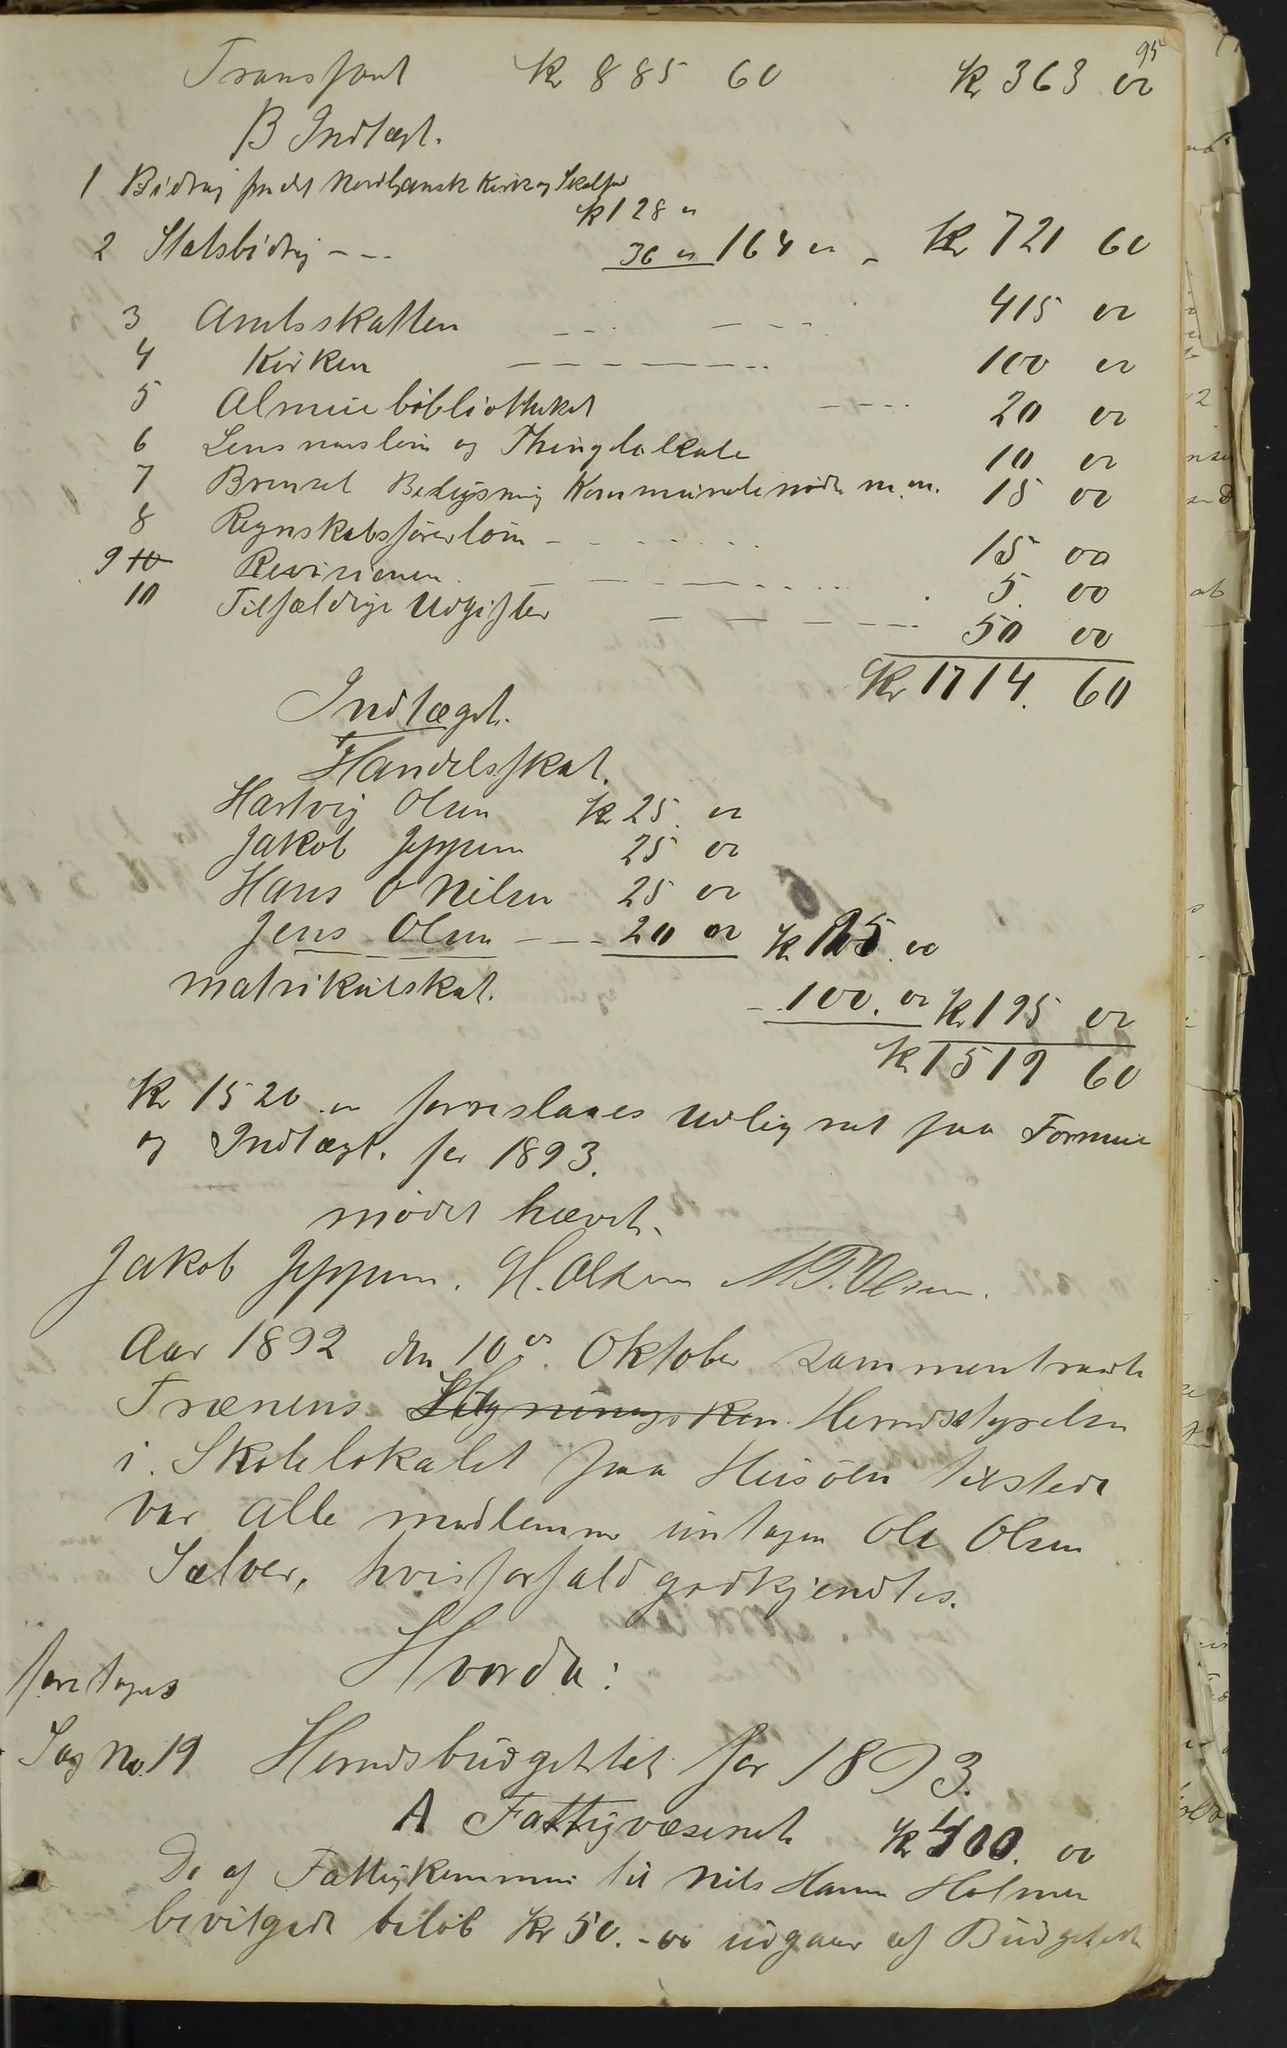 95
Transport Kr 885 60 Kr 363 00
B Indtægt.
1 Bidrag fra det Nordlandsk Kirke og Skolefond
Kr 128 "
2 Statsbidrag - - - 36 " 164 " - Kr 721 60
3 Amtsskatten - - - - - - 415 00
4 Kirken - - - - - - 100 00
5 Almuebibliotheket - - - - 20 00
6 Lensmarsløn og Thinglokale 10 00
7 Brensel Belysning Kommunelinødte m.m. 15 00
8 Regnskabsførerløn - - - - - 15 00
9 10 Revisionen - - - - - - 5. 00
10 Tilfældige Udgifter - - - - - 50 00
Kr 1714. 60
Indtægt.
Handelsskat.
Hartvig Olsen Kr 25. 00
Jakob Jeppsen 25 00
Hans O Nilsen 25 00
Jens Olsen - - - 20 00 Kr 95.00
matrikulskat. - 100. 00 Kr 195 00
Kr 1519 60
Kr 1520 00 forreslaaes Udlignet paa Formue
og Indtægt. for 1893.
mødet hævet.
Jakob Jeppsen. H. Olsen M T. Olsen.
Aar 1892 den 10de Oktober sammentraadte
Trænens Ligningskom Herredsstyrelse
i Skolelokalet paa Husøen tilstede
var alle medlemmer untagen Ole Olsen
Sælver, hvis forfald godkjendtes.
Hvorda:
foretoges
Sag No. 19 Herredsbudgettet for 1893.
A Fattigvæsenet Kr 400. 00
De af Fattigkommun til Nils Hansen Holmen
bevilgede beløb Kr 50.-00 udgaar af Budgettet